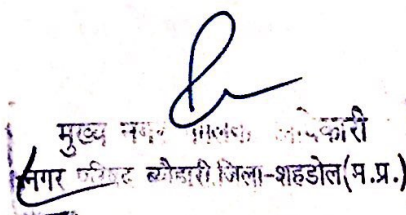 मुख्य नगर पालिका अधिकारी
नगर परिषद ब्यौहारी जिला-शहडोल(म.प्र.)